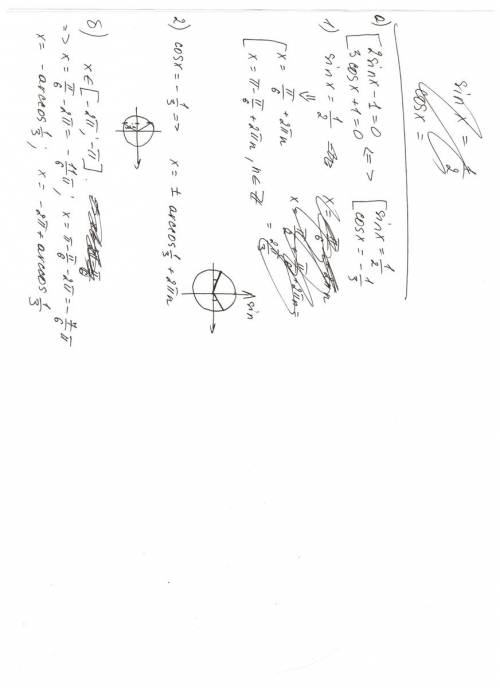 sin x = 1/2
cos x =
а) [ 2 sin x - 1 = 0 <=> [ sin x = 1/2
3 cos x + 1 = 0 cos x = - 1/3
1) sin x = 1/2 =>
⇓
[ x = π/6 + 2πn
x = π - π/6 + 2πn, n ∈ Z
= 2π/3
sin
2) cos x = - 1/3 => x = ± arccos 1/3 + 2πn
б) x ∈ [-2π; -π].
=> x = π/6 - 2π = - 11π/6; x = π - π/6 - 2π = - 7/6 π
x = - arccos 1/3; x = - 2π + arccos 1/3